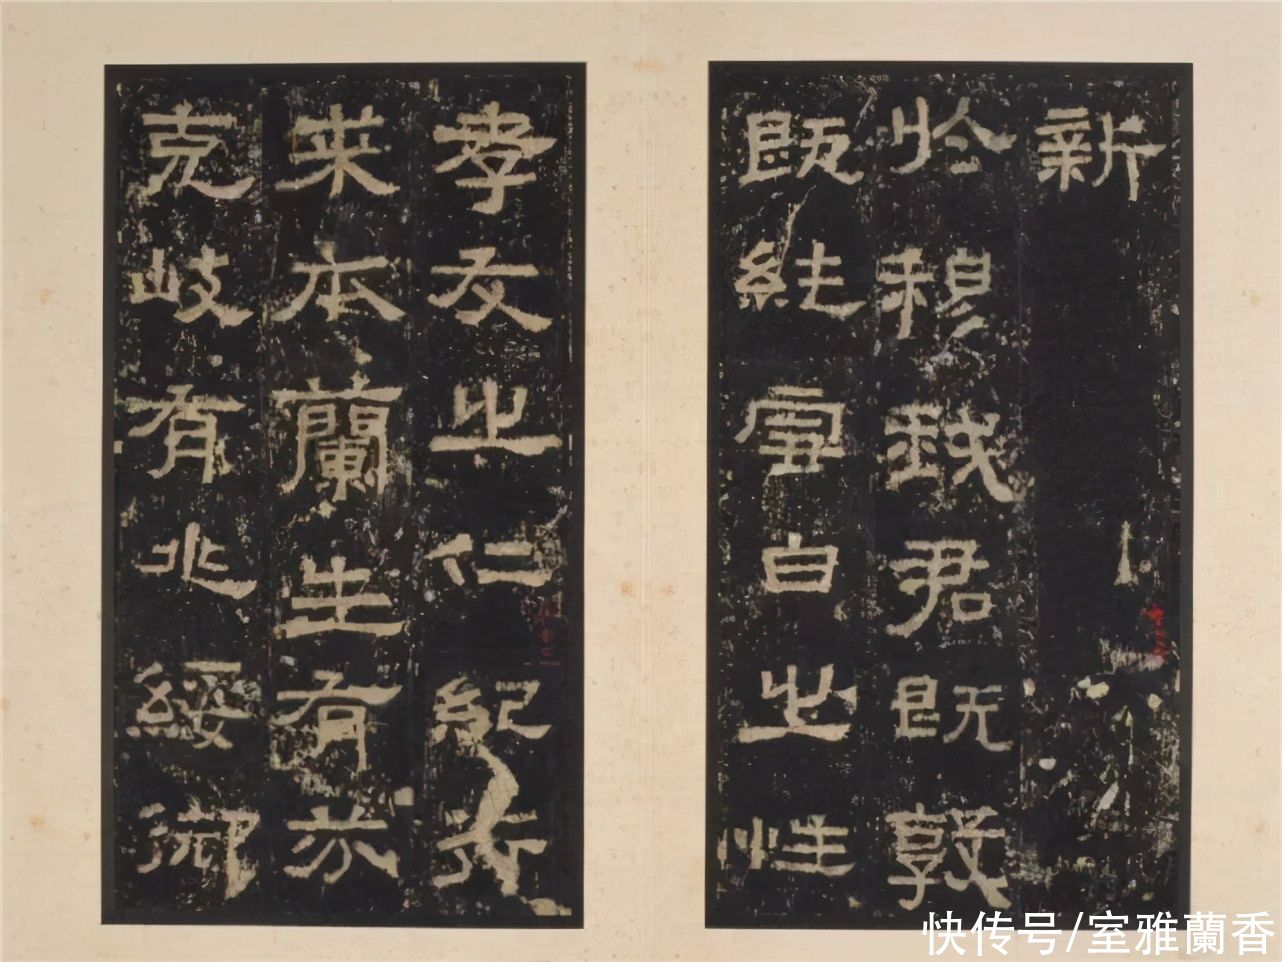 新
於穆我君既敦
既純雪白之性
孝友之仁紀行
来本蘭生有芬
克岐有兆綏御
快传号/室雅蘭香